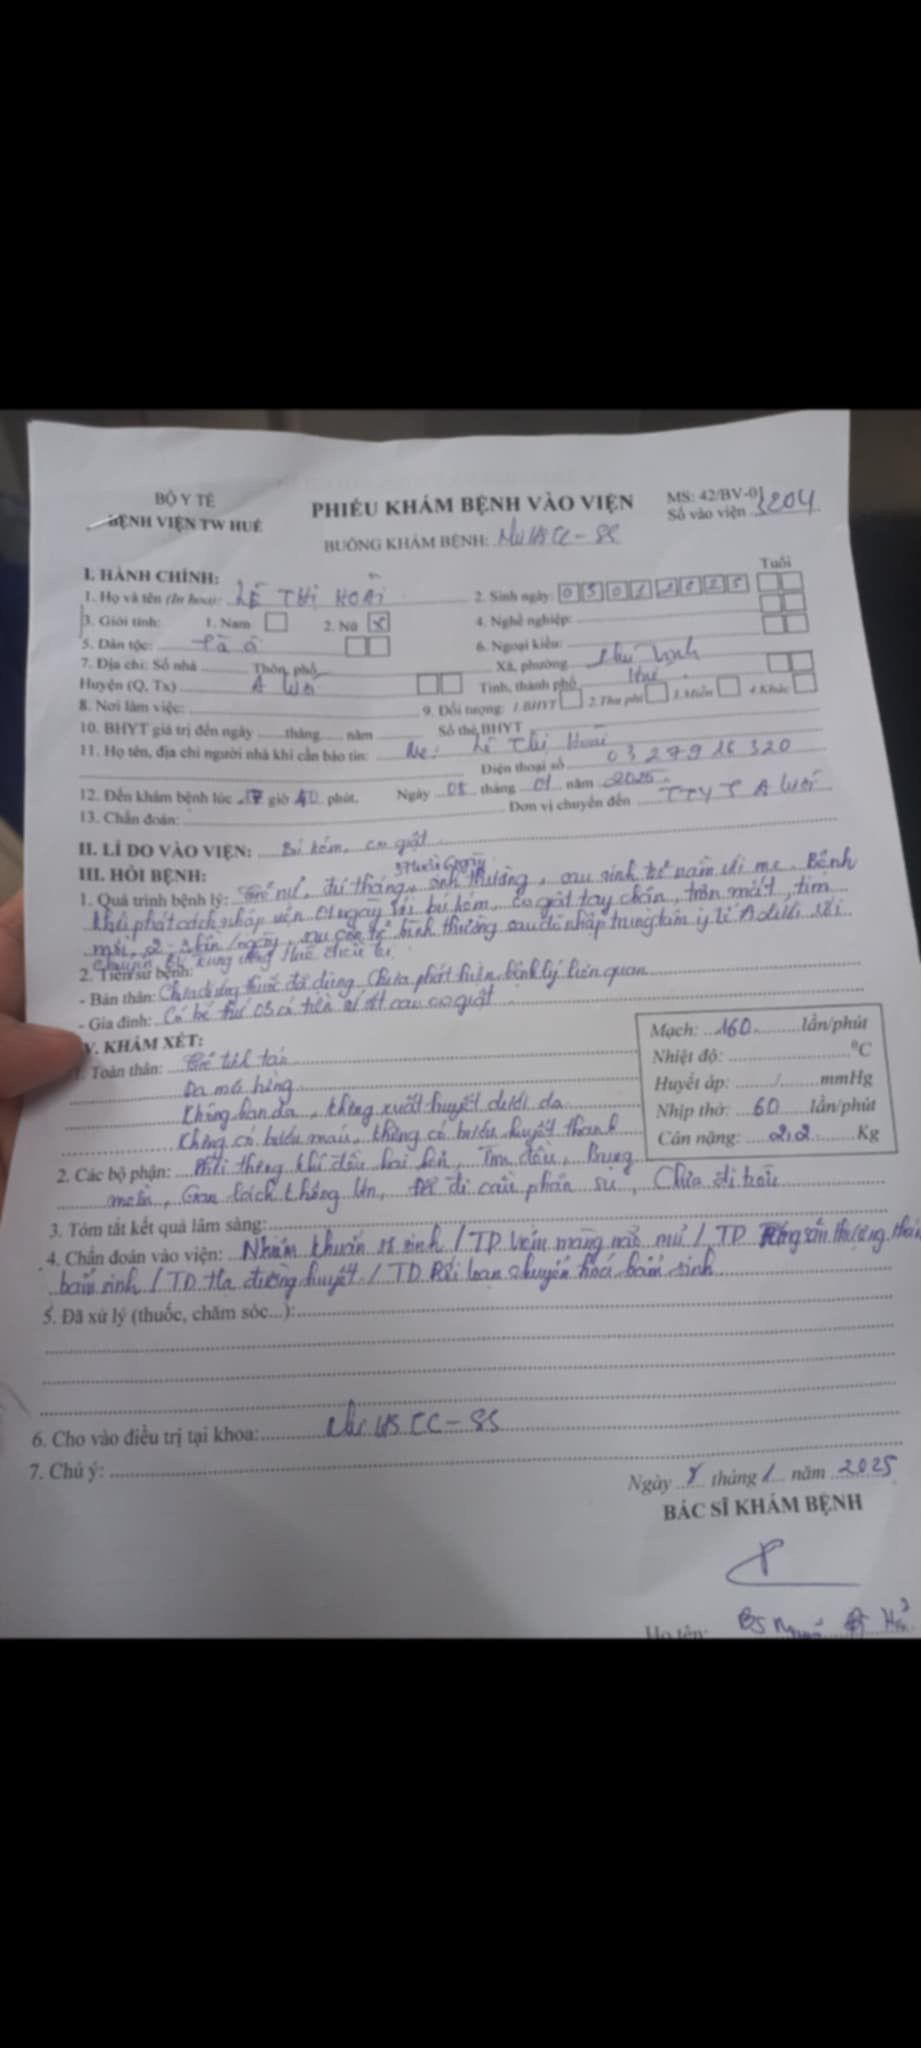 BỘ Y TẾ
BỆNH VIỆN TW HUẾ
PHIẾU KHÁM BỆNH VÀO VIỆN
MS: 42/BV-01
Số vào viện 3204
BUỒNG KHÁM BỆNH:
I. HÀNH CHÍNH:
Tuổi
1. Họ và tên (In hoa): LÊ THỊ HOÀI
2. Sinh ngày:
3. Giới tính: 1. Nam 2. Nữ x
4. Nghề nghiệp:
5. Dân tộc: Tà ôi
6. Ngoại kiều:
7. Địa chỉ: Số nhà Thôn, phố Xã, phường
Huyện (Q, Tx) A Lưới Tỉnh, thành phố Huế
8. Nơi làm việc: 9. Đối tượng: 1.BHYT 2.Thu phí 3.Miễn 4.Khác
10. BHYT giá trị đến ngày tháng năm Số thẻ BHYT
11. Họ tên, địa chỉ người nhà khi cần báo tin: Mẹ: Lê Thị Hoài
Điện thoại số
12. Đến khám bệnh lúc giờ 40 phút, Ngày 08 tháng 01 năm 2025
13. Chẩn đoán: Đơn vị chuyển đến TTYT A Lưới
II. LÍ DO VÀO VIỆN: Bú kém, co giật
III. HỎI BỆNH:
1. Quá trình bệnh lý: nữ, đủ tháng, sinh thường, sau sinh trẻ nằm với mẹ. Bệnh
khởi phát cách nhập viện 01 ngày với bú kém, co giật tay chân, trợn mắt, tím
môi, 2-3 lần/ngày, sau cơn trẻ bình thường sau đó nhập trung tâm y tế A Lưới rồi
chuyển BV trung ương Huế điều trị
2. Tiền sử bệnh:
- Bản thân: Chưa dùng thuốc đã dùng. Chưa phát hiện bệnh lý liên quan
- Gia đình: Có bé thứ 03 có tiền sử cơn co giật
IV. KHÁM XÉT:
1. Toàn thân: Trẻ tỉnh táo
Da môi hồng
Không ban da, không xuất huyết dưới da
Không có bướu máu, không có bướu huyết thanh
Mạch: 160 lần/phút
Nhiệt độ: °C
Huyết áp: / mmHg
Nhịp thở: 60 lần/phút
Cân nặng: 2,2 Kg
2. Các bộ phận: Phổi thông khí đều hai bên, Tim đều, Bụng
mềm, Gan lách không lớn, đi cầu phân su, Chưa đi
3. Tóm tắt kết quả lâm sàng:
4. Chẩn đoán vào viện: Nhiễm khuẩn sơ sinh / TD Viêm màng não mủ / TD thượng thận
bẩm sinh / TD Hạ đường huyết / TD Rối loạn chuyển hóa bẩm sinh
5. Đã xử lý (thuốc, chăm sóc...):
6. Cho vào điều trị tại khoa:
7. Chú ý:
Ngày 8 tháng 1 năm 2025
BÁC SĨ KHÁM BỆNH
Họ tên: BS